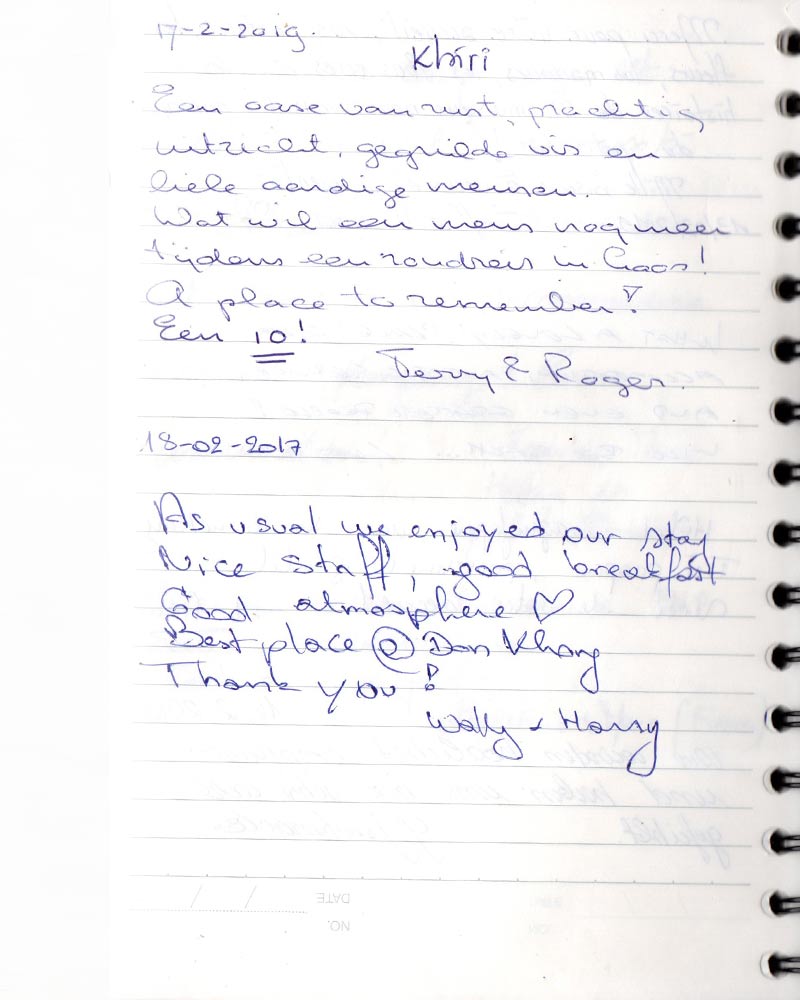 17-2-2019.
Khiri
Een oase van rust, prachtig
uitzicht, gegrilde vis en
hele aardige mensen.
Wat wil een mens nog meer
tijdens een rondreis in Laos!
A place to remember!
Een 10!
Terry & Roger.
18-02-2017
As usual we enjoyed our stay
Nice staff, good breakfast
Good atmosphere ♡
Best place @ Don Khong
Thank you!
Wally + Harry
DATE
NO.